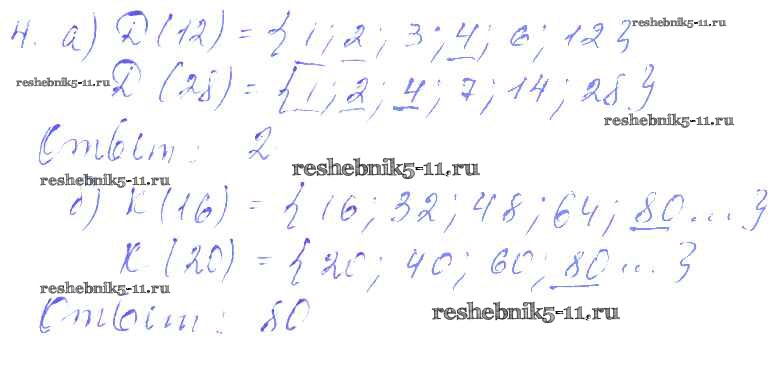 4. а) Д (12) = {1; 2; 3; 4; 6; 12} reshebnik5-11.ru
reshebnik5-11.ru Д (28) = {1; 2; 4; 7; 14; 28}
reshebnik5-11.ru
Ответ: 2 reshebnik5-11.ru
reshebnik5-11.ru
б) К (16) = {16; 32; 48; 64; 80...}
К (20) = {20; 40; 60; 80...}
reshebnik5-11.ru
Ответ: 80 reshebnik5-11.ru